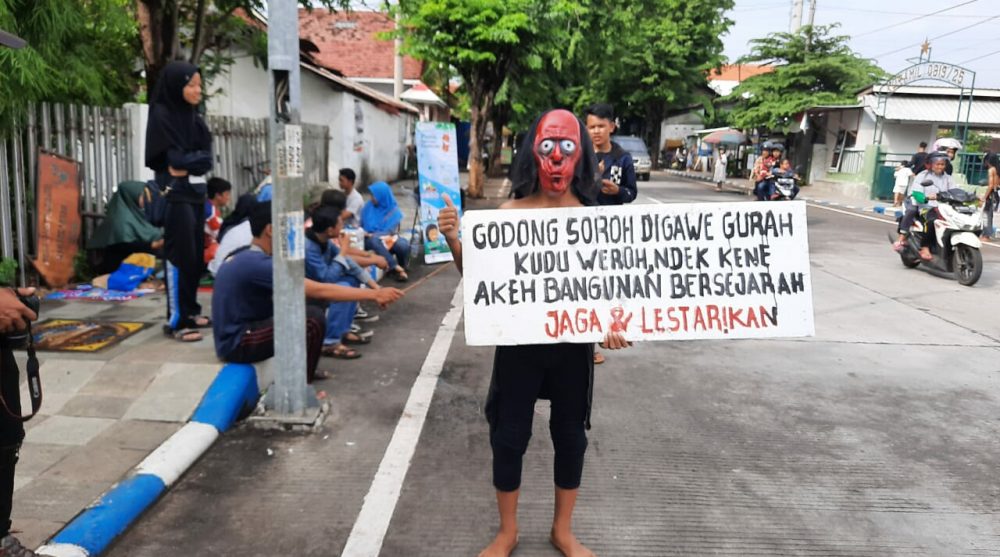 GODONG SOROH DIGAWE GURAH
KUDU WEROH, NDEK KENE
AKEH BANGUNAN BERSEJARAH
JAGA & LESTARIKAN